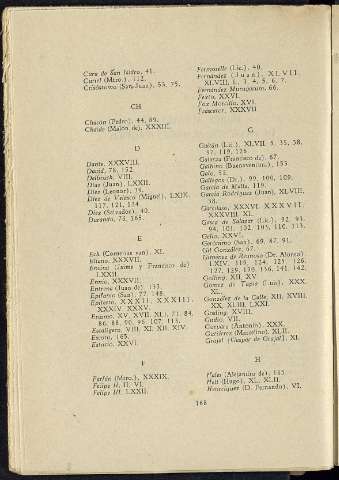 Cura de San Isidro, 41.
Curiel (Mtro.), 112.
Crisóstomo (San Juan), 53, 75.
CH
Chacón (Pedro), 44, 89.
Chaide (Malón de), XXXIII.
D
Dante, XXXVIII.
David, 76, 152.
Delbosch, VIII.
Díaz (Juan), LXXII.
Díez (Leonor), 39.
Díez de Velasco (Miguel), LXIX,
117, 121, 134.
Díez (Salvador), 40.
Durando, 75, 165.
E
Eck (Cornelius van), XI.
Eliano, XXXVII.
Encina (Jaime y Francisco de)
LXXII.
Ennio, XXXVII.
Entrena (Juan de), 133.
Epifanio (San), 77, 148.
Epicteto, XXXII, XXXIII,
XXXIV, XXXV.
Erasmo, XV, XVII, XLI, 71, 84,
86, 88, 90, 96, 107, 113.
Escalígero, VIII, XI, XII, XIV.
Escoto, 165.
Estacio, XXVI.
F
Farfán (Mtro.), XXXIX.
Felipe II, II, VI.
Felipe III, LXXII.
Fermoselle (Lic.), 40.
Fernández (Juan), XLVII,
XLVIII, 2, 3, 4, 5, 6, 7.
Fernández Munaguren, 66.
Festo, XXVI.
Fox Morcillo, XVI.
Fracastor, XXXVII
G
Gaitán (Lic.), XLVII, 5, 35, 38,
57, 119, 126.
Galarza (Francisco de), 67.
Galbino (Buenaventura), 153.
Galo, 51.
Gallegos (Dr.), 99, 106, 109.
García de Malla, 119.
García Rodríguez (Juan), XLVIII,
38.
Garcilaso, XXXVI, XXXVII,
XXXVIII, XL.
Gasca de Salazar (Lic.), 92, 93,
94, 101, 102, 105, 110, 113.
Gelio, XXVI.
Gerónimo (San), 69, 87, 91.
Gil González, 67.
Giménez de Reinoso (Dr. Alonso)
LXIV, 119, 124, 125, 126,
127, 129, 130, 136, 141, 142.
Golling, XII, XV.
Gómez de Tapia (Luis), XXX,
XL.
González de la Calle, XII, XVIII,
XX, XLIII, LXXI.
Grading, XVIII.
Gudio, VII.
Guevara (Antonio), XXX.
Gutiérrez (Marcelino), XLII.
Grajal (Gaspar de Grajal), XI.
H
Hales (Alejandro de), 165.
Hatt (Hugo), XL, XLII.
Henríquez (D. Fernando), VI.
168